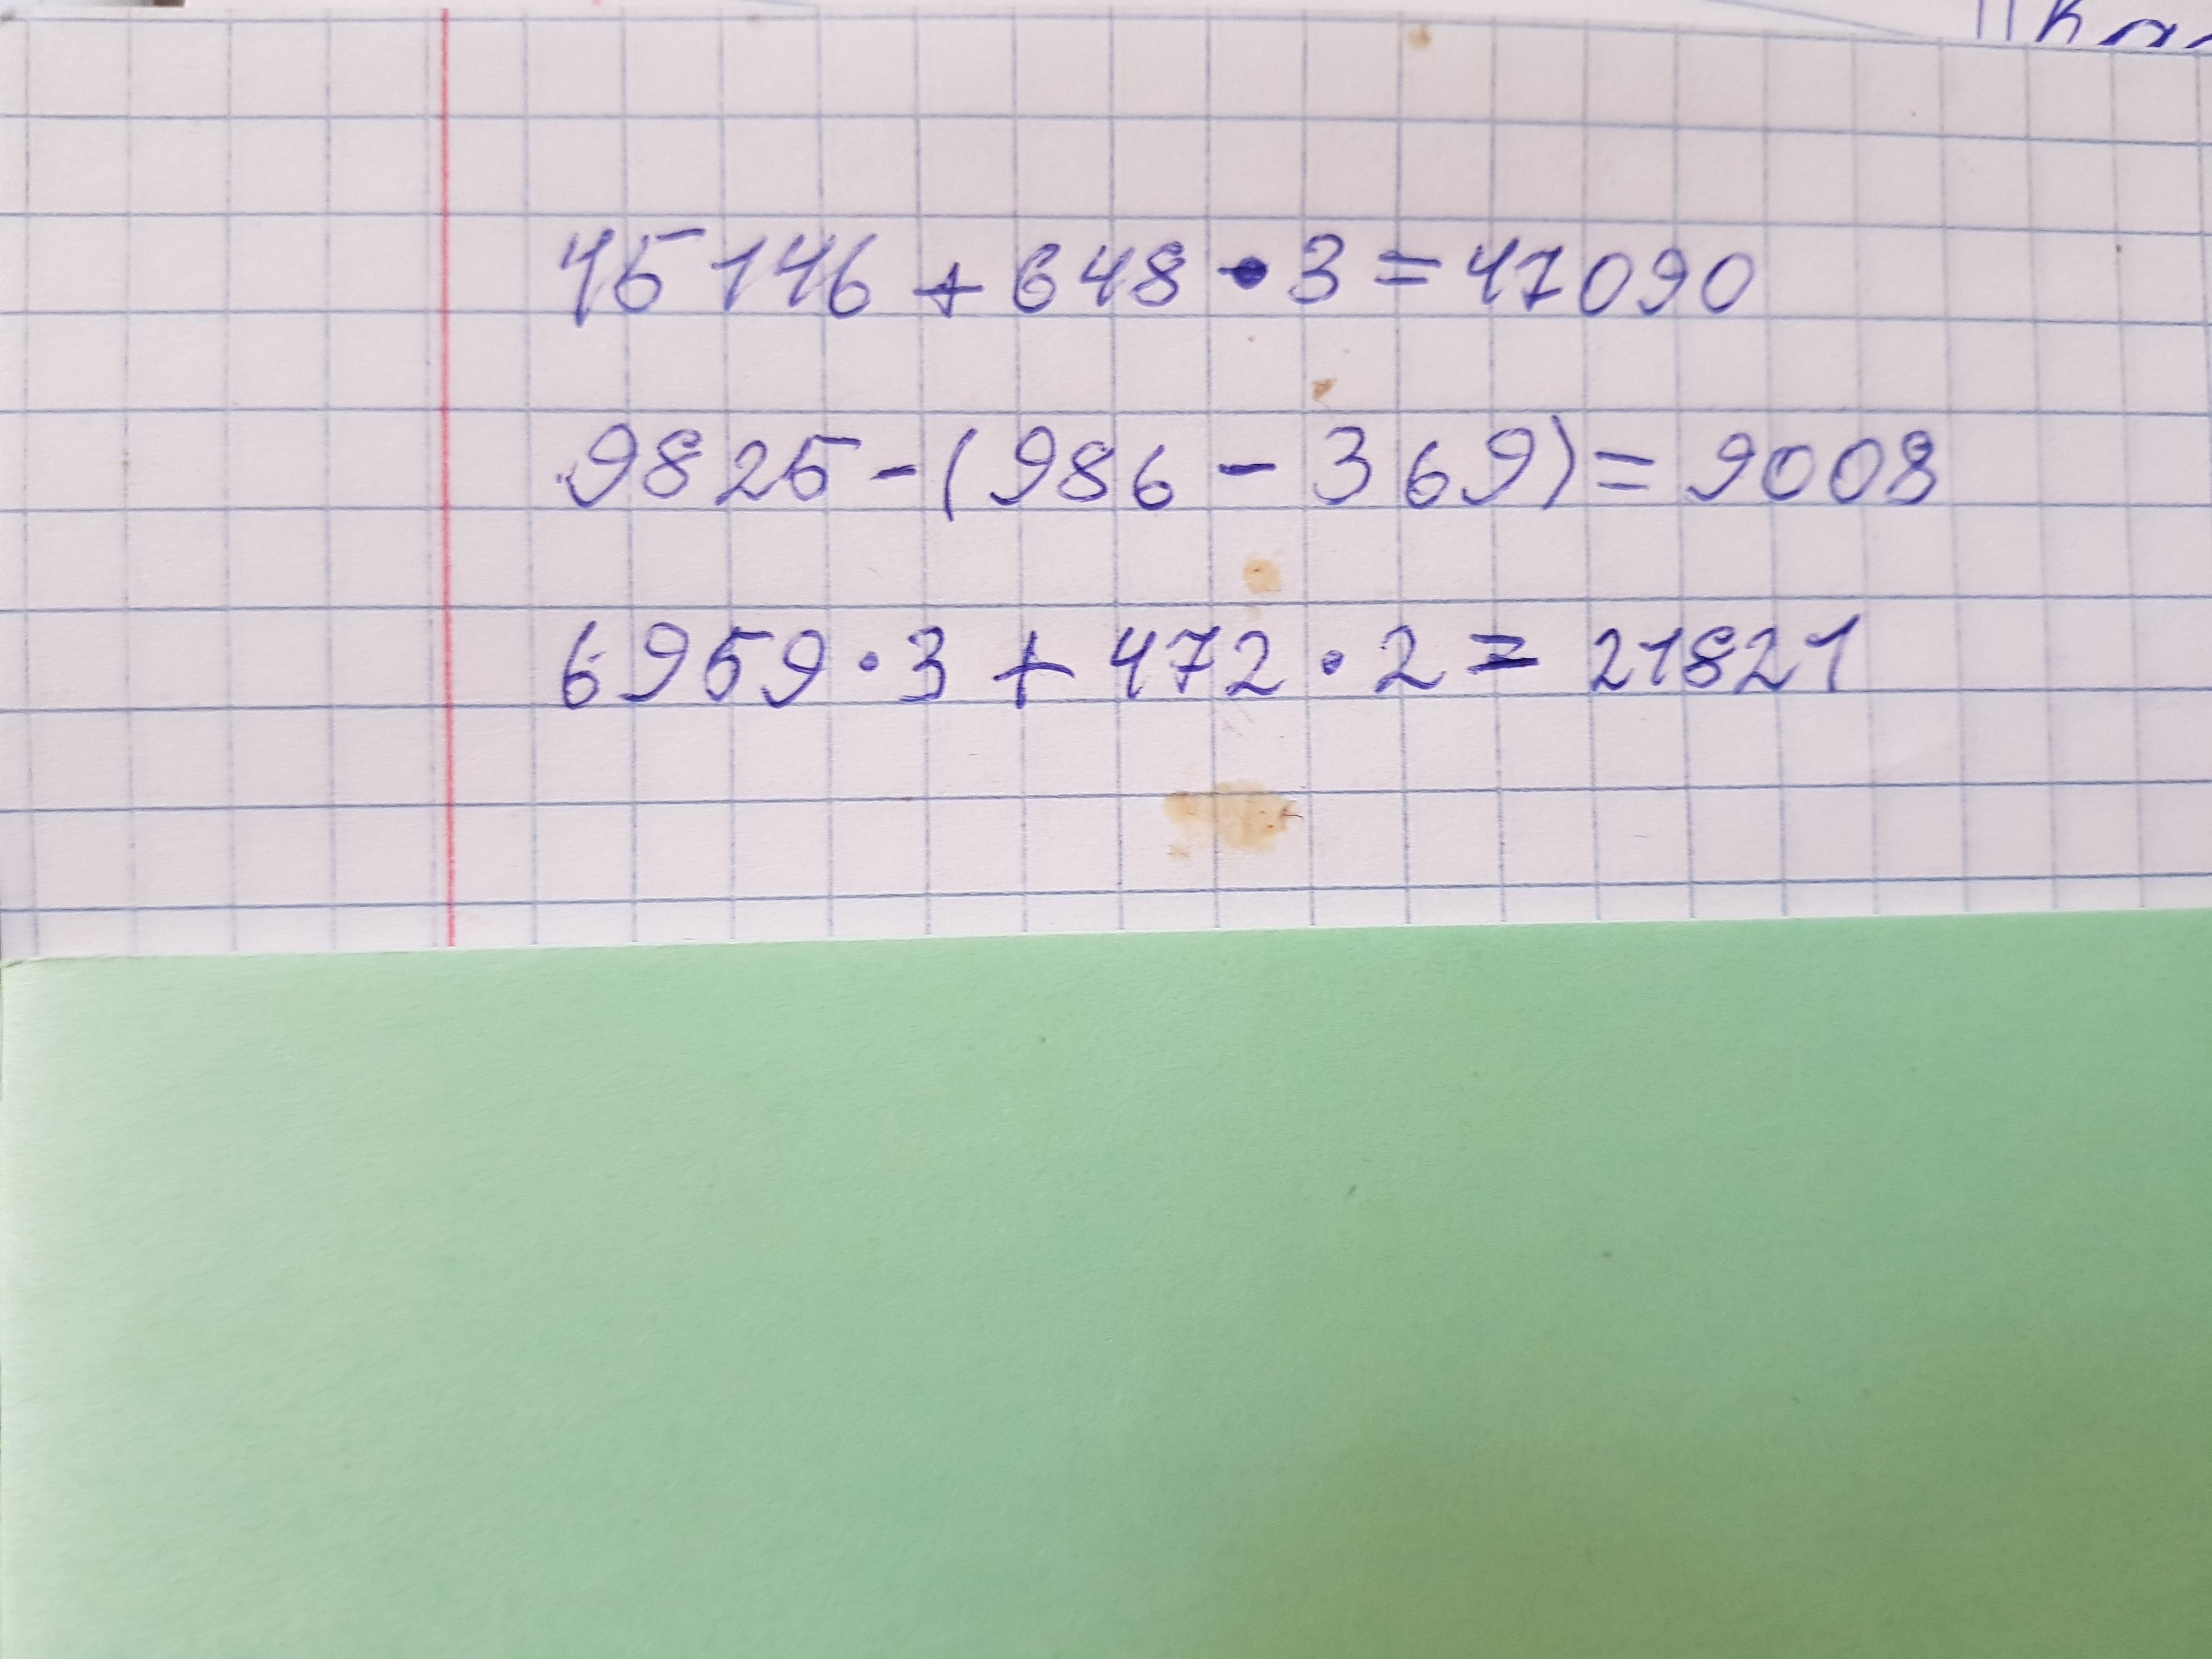 45146 + 648 · 3 = 47090
9825 - (986 - 369) = 9008
6959 · 3 + 472 · 2 = 21821